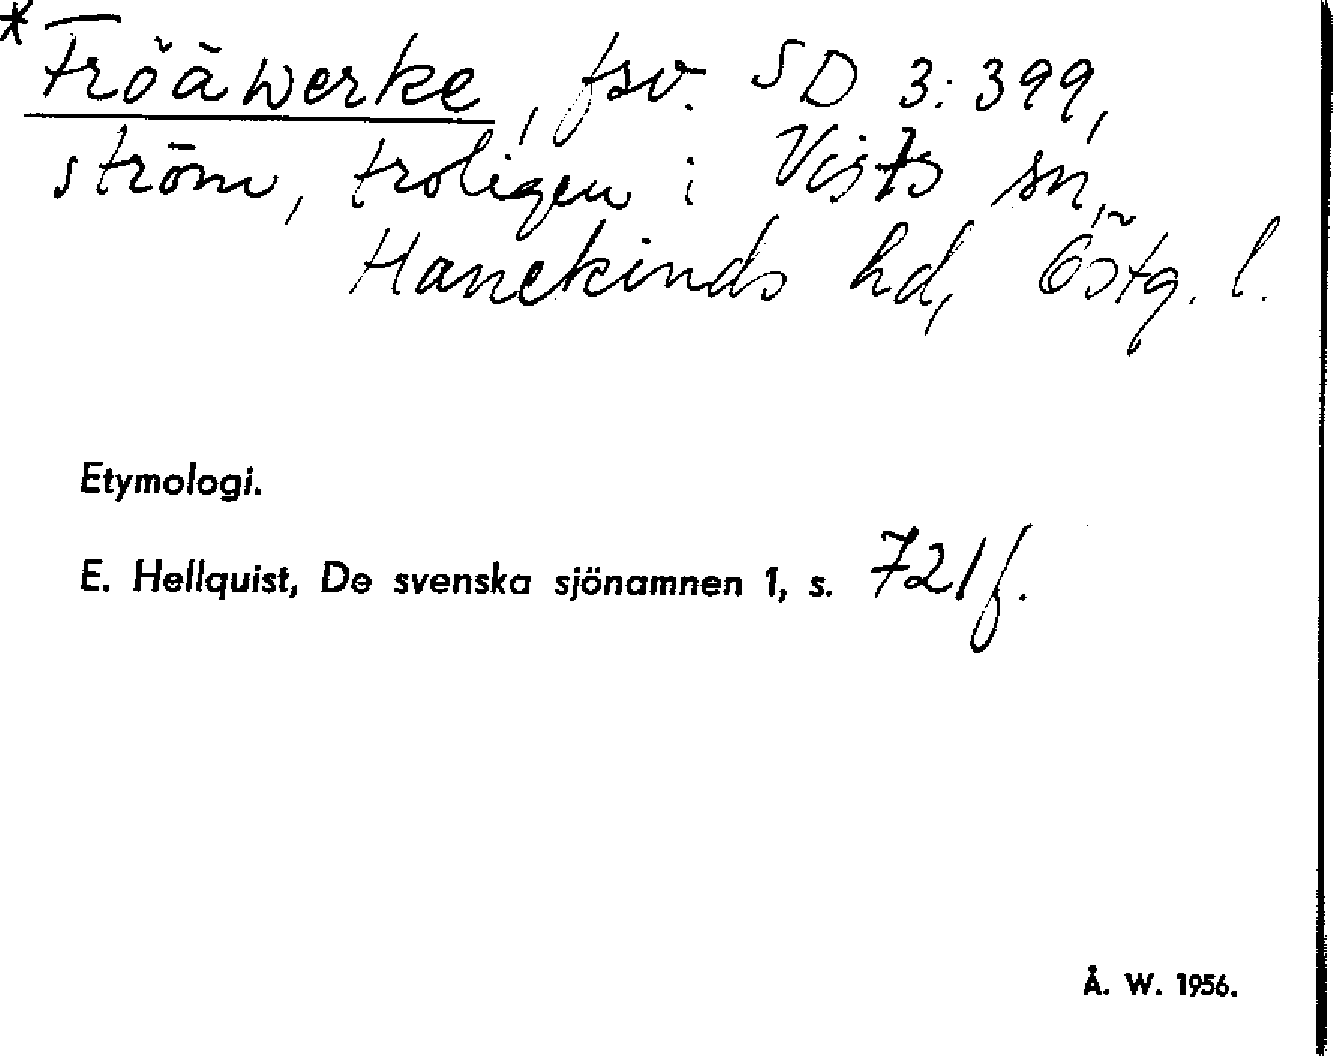 *Fröäwerke, fsv. SD 3:399,
ström, troligen i Vists sn,
Hanekinds hd, Östg. l.
Etymologi.
E. Hellquist, De svenska sjönamnen 1, s. 721 f.
Å. W. 1956.